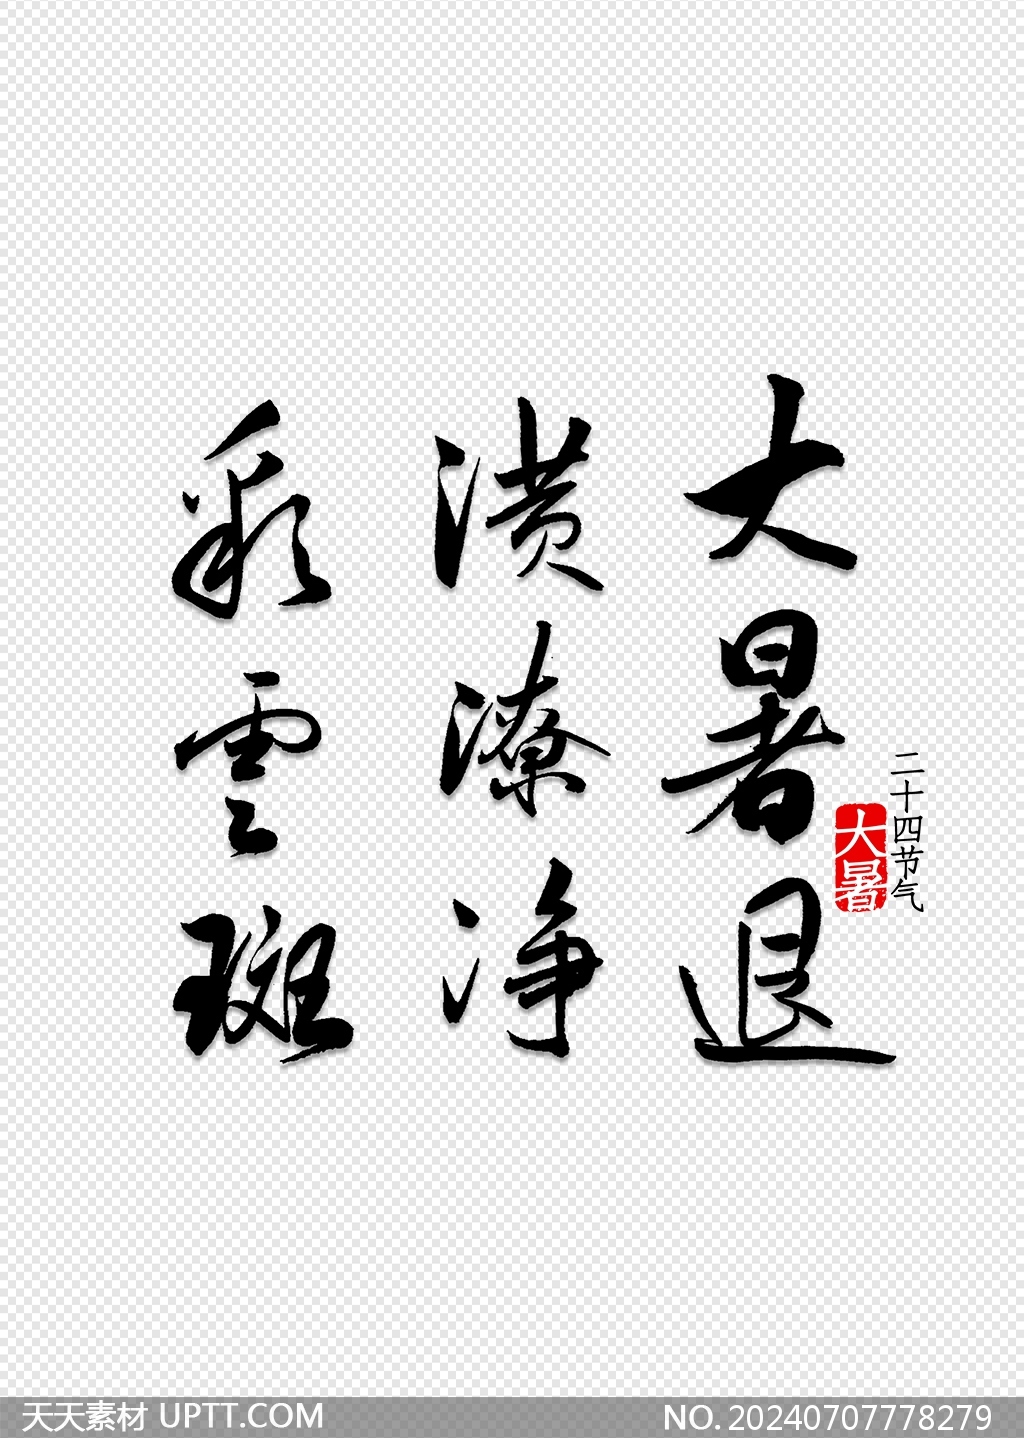 大暑退
潢潦净
彩雲斑
二十四节气
大暑
天天素材 UPTT.COM
NO. 20240707778279